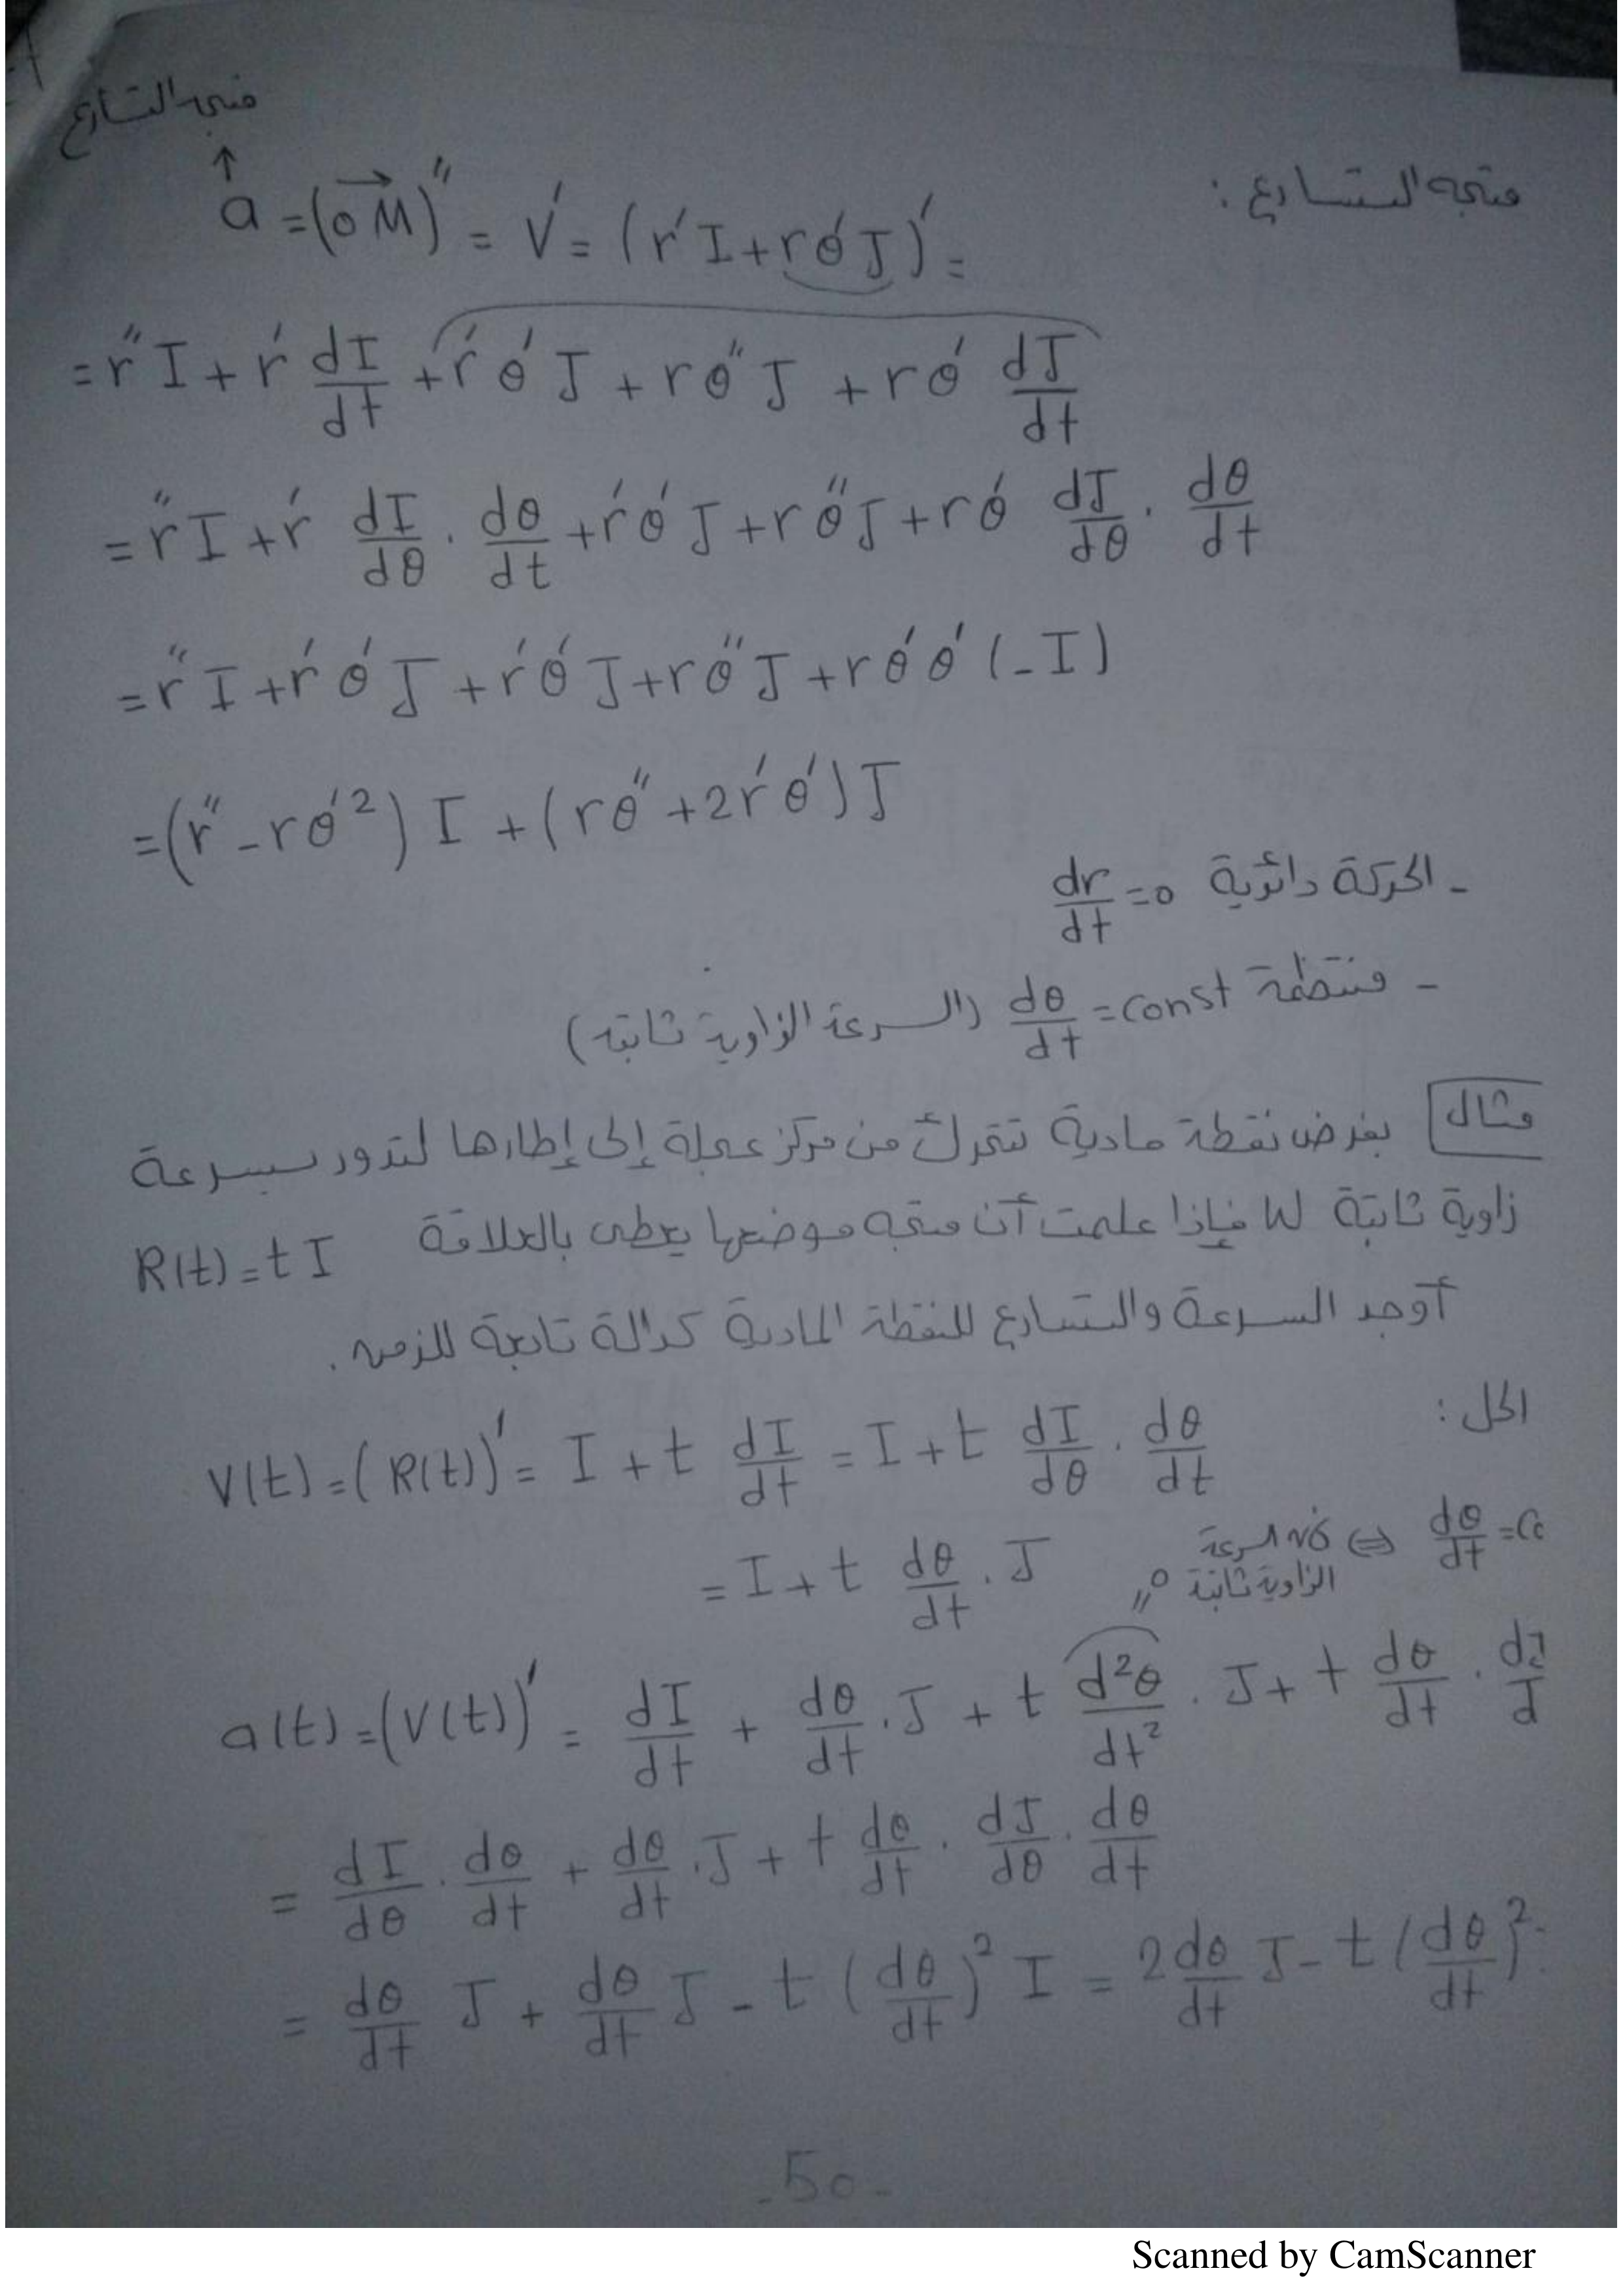 متجه التسارع
↑
متجه التسارع :
a = (OM)'' = V' = (r'I + rθ'J)' =
= r''I + r' dI/dt + r'θ'J + rθ''J + rθ' dJ/dt
= r''I + r' dI/dθ . dθ/dt + r'θ'J + rθ''J + rθ' dJ/dθ . dθ/dt
= r''I + r'θ'J + r'θ'J + rθ''J + rθ'θ'(-I)
= (r'' - rθ'²) I + (rθ'' + 2r'θ')J
- الحركة دائرية dr/dt = 0
- منتظمة dθ/dt = const (السرعة الزاوية ثابتة)
مثال بفرض نقطة مادية تتحرك من مركز عجلة إلى إطارها لتدور بسرعة
زاوية ثابتة فإذا علمت أن متجه موضعها يعطى بالعلاقة R(t) = t I
أوجد السرعة والتسارع للنقطة المادية كدالة تابعة للزمن .
الحل :
V(t) = (R(t))' = I + t dI/dt = I + t dI/dθ . dθ/dt
= I + t dθ/dt . J
السرعة الزاوية ثابتة ⇔ dθ/dt =
0
a(t) = (V(t))' = dI/dt + dθ/dt . J + t d²θ/dt² . J + t dθ/dt .
= dI/dθ . dθ/dt + dθ/dt . J + t dθ/dt . dJ/dθ . dθ/dt
= dθ/dt J + dθ/dt J - t (dθ/dt)² I = 2 dθ/dt J - t (dθ/dt)²
- 50 -
Scanned by CamScanner